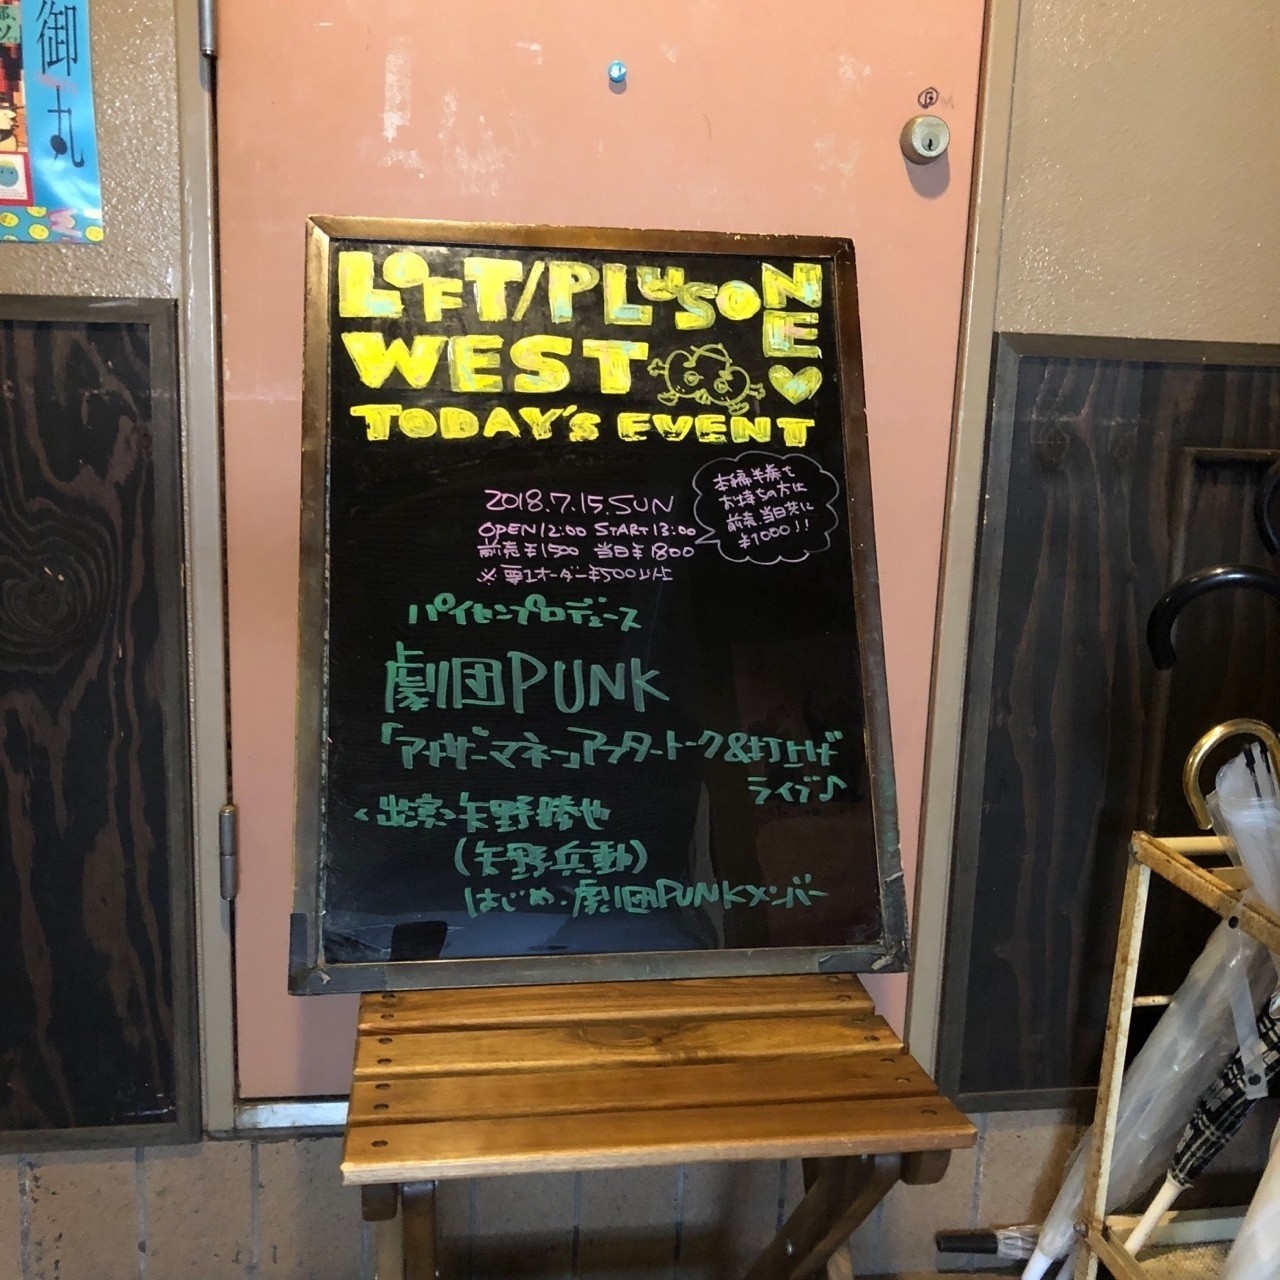 御
丸
LOFT/PLUSONE
WEST
TODAY'S EVENT
2018.7.15.SUN
OPEN12:00 START13:00
前売¥1500 当日¥1800
※要1オーダー¥500以上
本編半券を
お持ちの方は
前売、当日共に
¥1000!!
パイセンプロデュース
劇団PUNK
「アナザーマネー」アフタートーク&打上げ
ライブ♪
<出演>矢野勝也
(矢野兵動)
はじめ、劇団PUNKメンバー